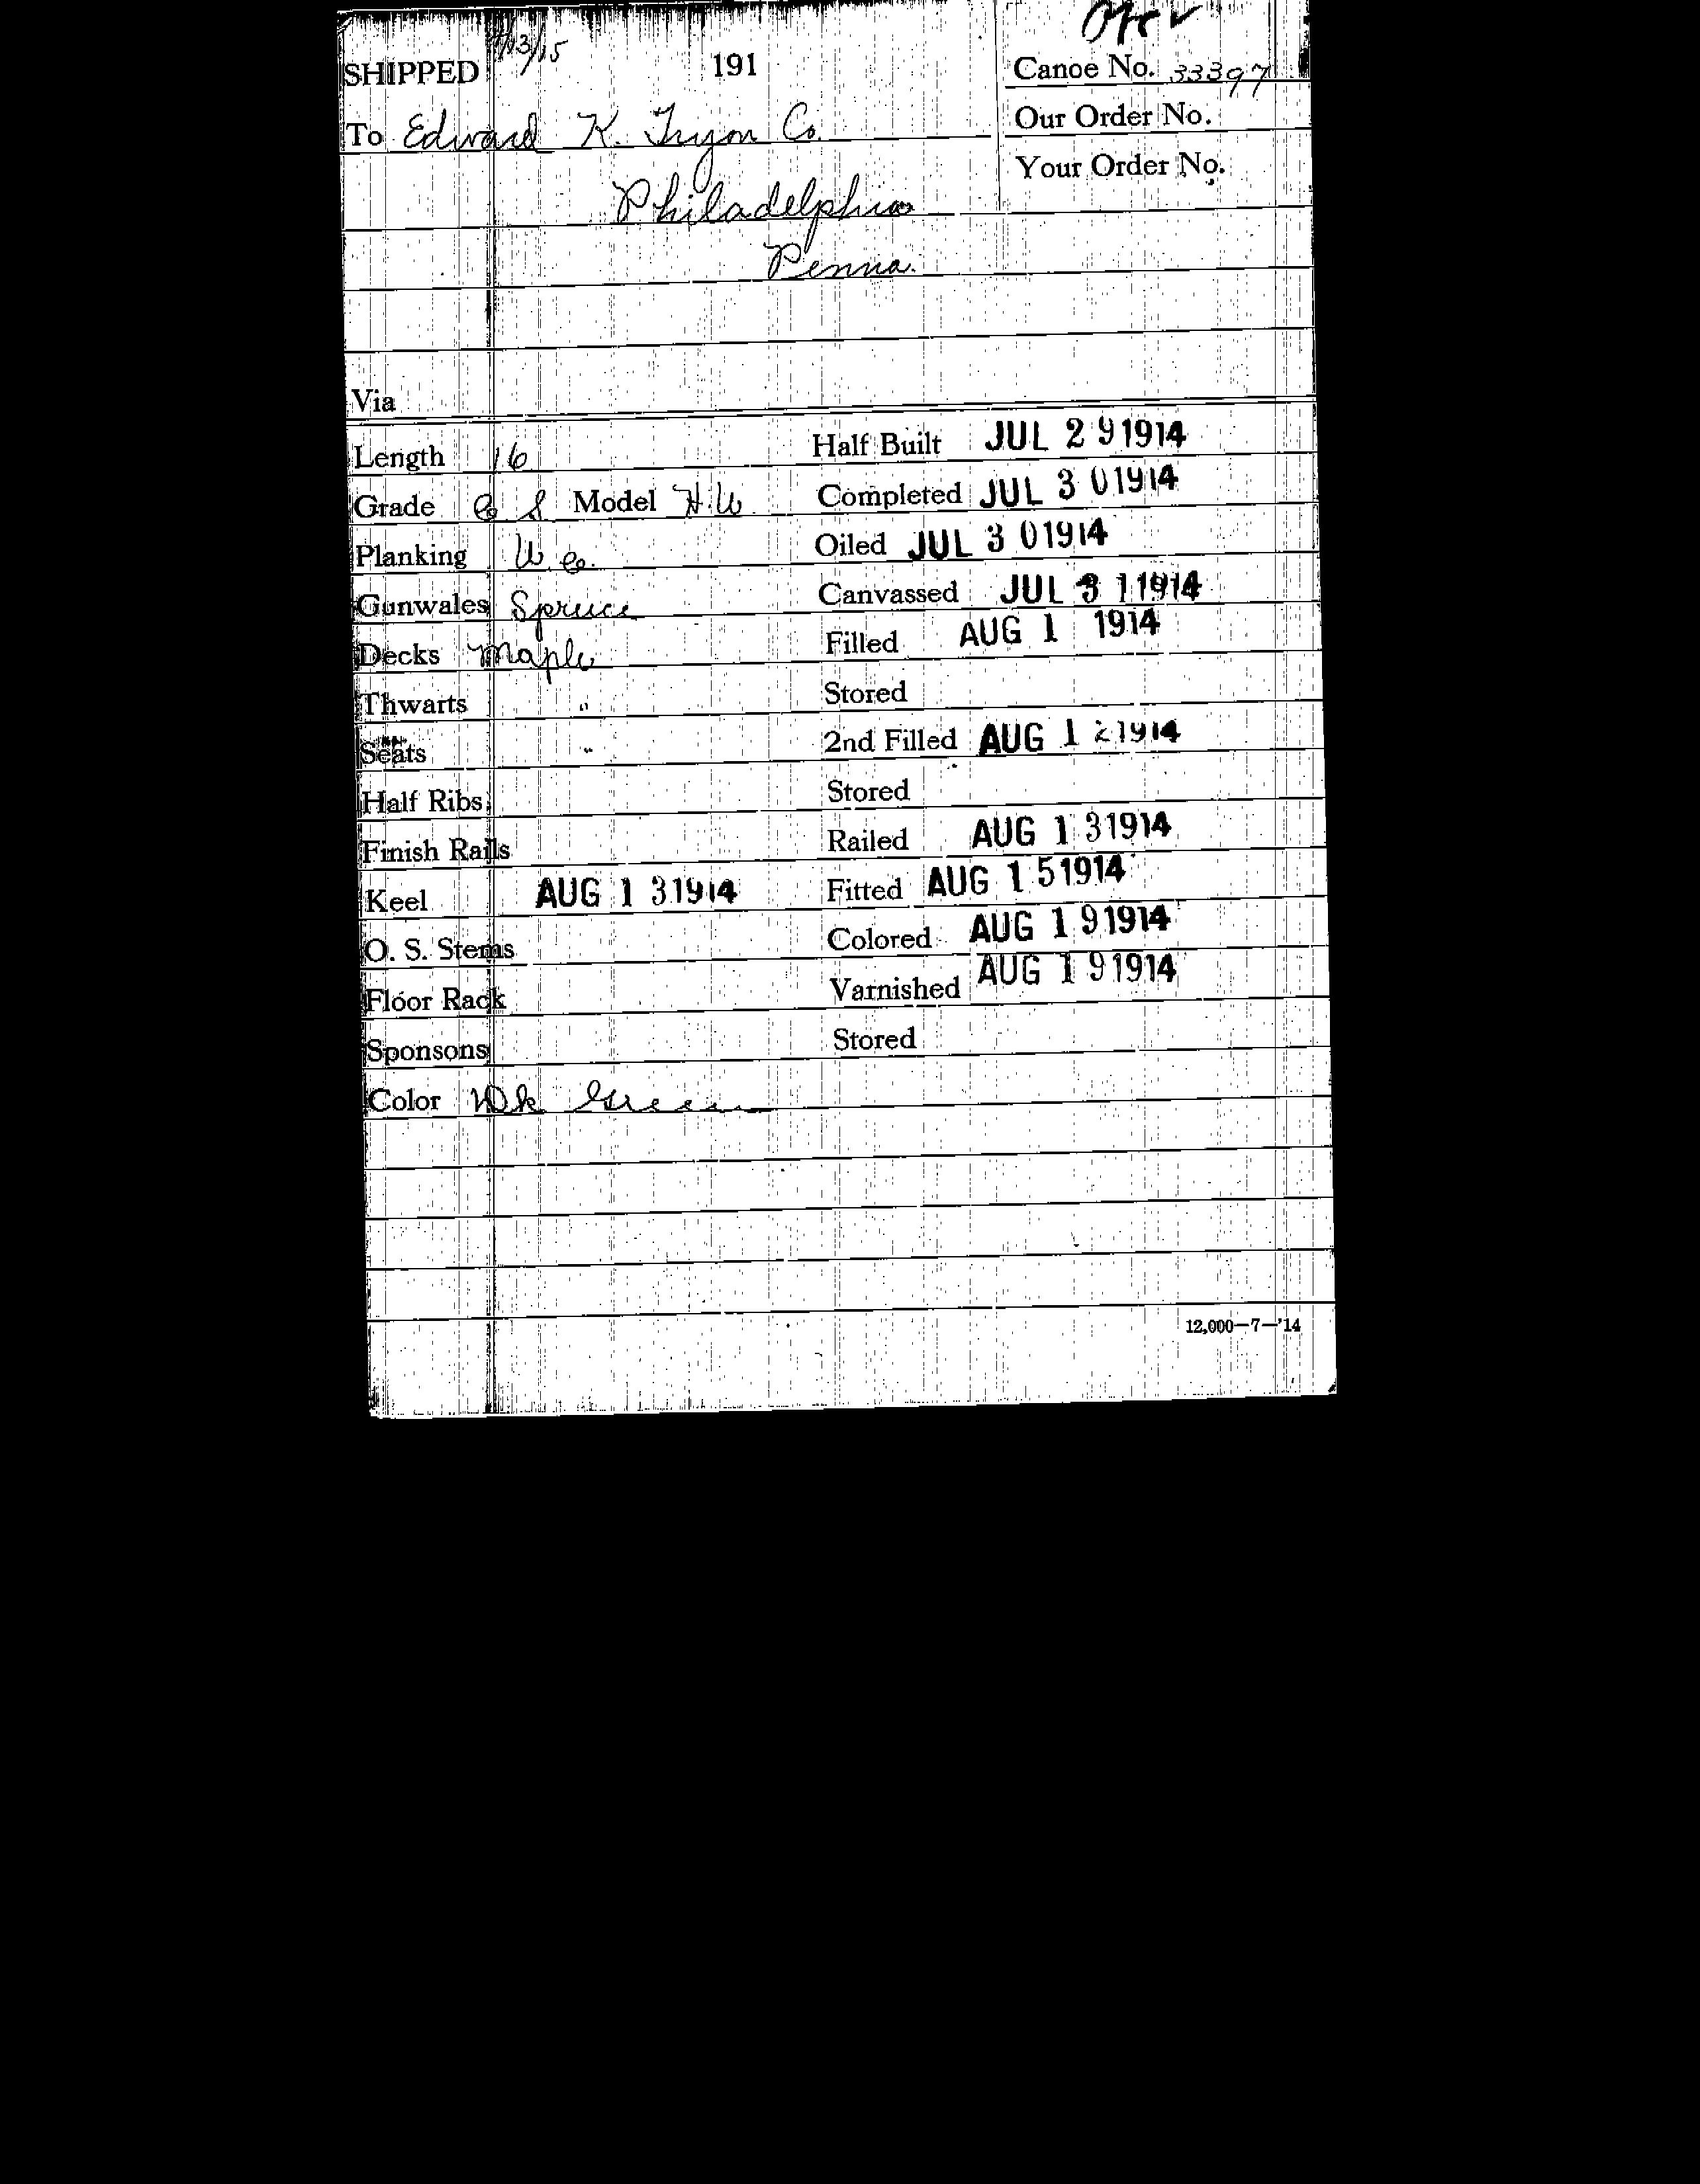 Over
SHIPPED 4/13/15 191
Canoe No. 33397
To Edward K. Tryon Co.
Our Order No.
Your Order No.
Philadelphia
Penna.
Via
Length 16 Half Built JUL 29 1914
Grade C S Model H.W. Completed JUL 30 1914
Planking W.C. Oiled JUL 30 1914
Gunwales Spruce Canvassed JUL 31 1914
Decks Maple Filled AUG 1 1914
Thwarts " Stored
Seats " 2nd Filled AUG 12 1914
Half Ribs Stored
Finish Rails Railed AUG 13 1914
Keel AUG 13 1914 Fitted AUG 15 1914
O. S. Stems Colored AUG 19 1914
Floor Rack Varnished AUG 19 1914
Sponsons Stored
Color Dk Green
12,000—7—'14